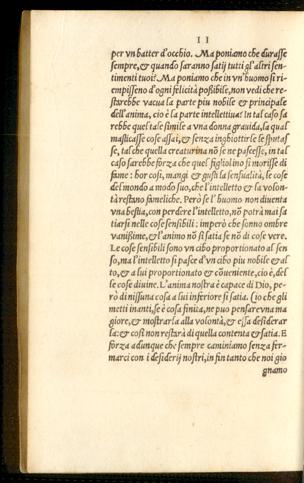 II
per vn batter d'occhio. Ma poniamo che durasse
sempre, & quando saranno satij tutti gl'altri sen-
timenti tuoi? Ma poniamo che in vn'huomo si ri-
empissero d'ogni felicità poßibile, non vedi che re-
starebbe vacua la parte piu nobile & principale
dell'anima, cio è la parte intellettiua? In tal caso sa
rebbe quel tale simile a vna donna grauida, la qual
masticasse cose assai, & senza inghiottirle le sputas
se, tal che quella creaturina nõ se ne pascesse, in tal
caso sarebbe forza che quel figliolino si morisse di
fame: hor cosi, mangi & gusti la sensualità, le cose
del mondo a modo suo, che l'intelletto & la volon-
tà restano fameliche. Però se l'huomo non diuenta
vna bestia, con perdere l'intelletto, nõ potrà mai sa
tiarsi nelle cose sensibili: imperò che sonno ombre
vanißime, & l'animo nõ si satia se nõ di cose vere.
Le cose sensibili sono vn cibo proportionato al sen-
so, ma l'intelletto si pasce d'vn cibo piu nobile & al
to, & a lui proportionato & cõueniente, cio è, del
le cose diuine. L'anima nostra è capace di Dio, pe-
rò di nissuna cosa a lui inferiore si satia. Cio che gli
metti inanti, se è cosa finita, ne puo pensare vna ma
giore, & mostrarla alla volontà, & essa desiderar
la: & cosi non restarà di quella contenta & satia. E
forza adunque che sempre caminiamo senza fer-
marci con i desiderij nostri, in fin tanto che noi gio
gnamo